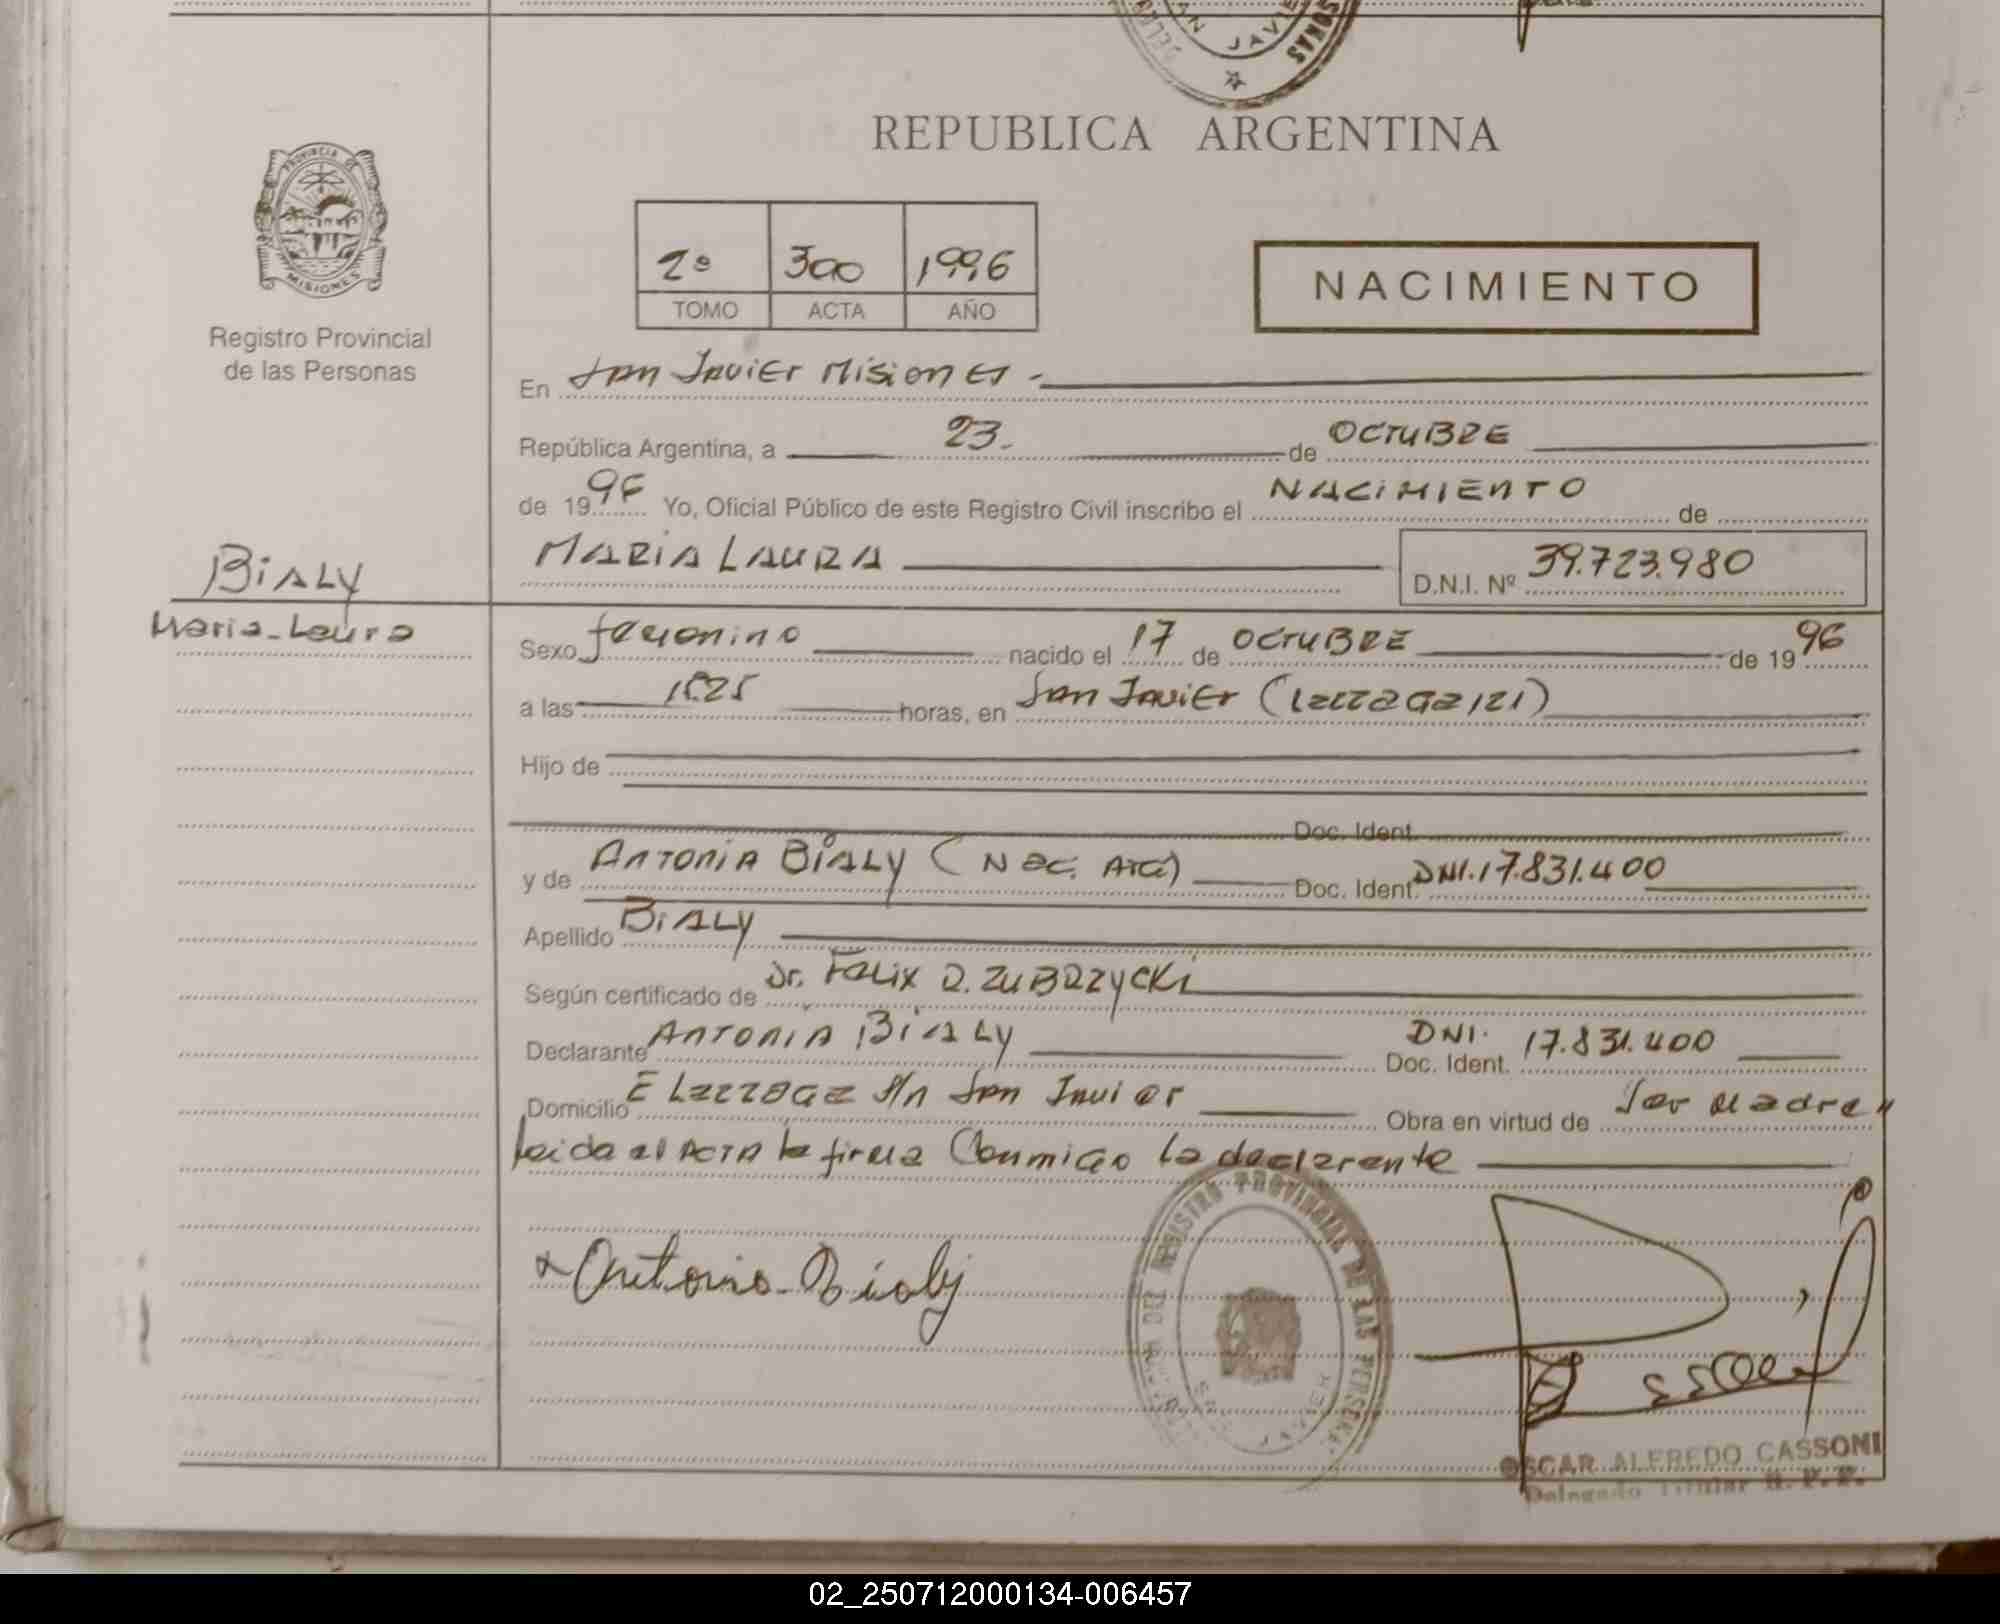 SAN JAVIER
REPUBLICA ARGENTINA
PROVINCIA DE
MISIONES
Registro Provincial
de las Personas
2º 300 1996
TOMO ACTA AÑO
NACIMIENTO
En San Javier Misiones -
República Argentina, a 23. de OCTUBRE
de 1996 Yo, Oficial Público de este Registro Civil inscribo el NACIMIENTO de
MARIA LAURA D.N.I. Nº 39.723.980
BIALY
Maria-Laura
Sexo femenino nacido el 17 de OCTUBRE de 1996
a las horas, en San Javier
Hijo de
Doc. Ident.
y de ANTONIA BIALY (Nac. ARG) Doc. Ident. DNI.17.831.400
Apellido BIALY
Según certificado de Dr. Felix R. ZUBRZYCKI
Declarante ANTONIA BIALY Doc. Ident. DNI. 17.831.400
Domicilio S/n San Javier Obra en virtud de Ser Madre
leida el ACTA la firma Conmigo la declarante
Antonia Bialy
REGISTRO PROVINCIAL DE LAS PERSONAS
SAN JAVIER
OSCAR ALFREDO CASSONI
Delegado Titular R. P. P.
02_250712000134-006457